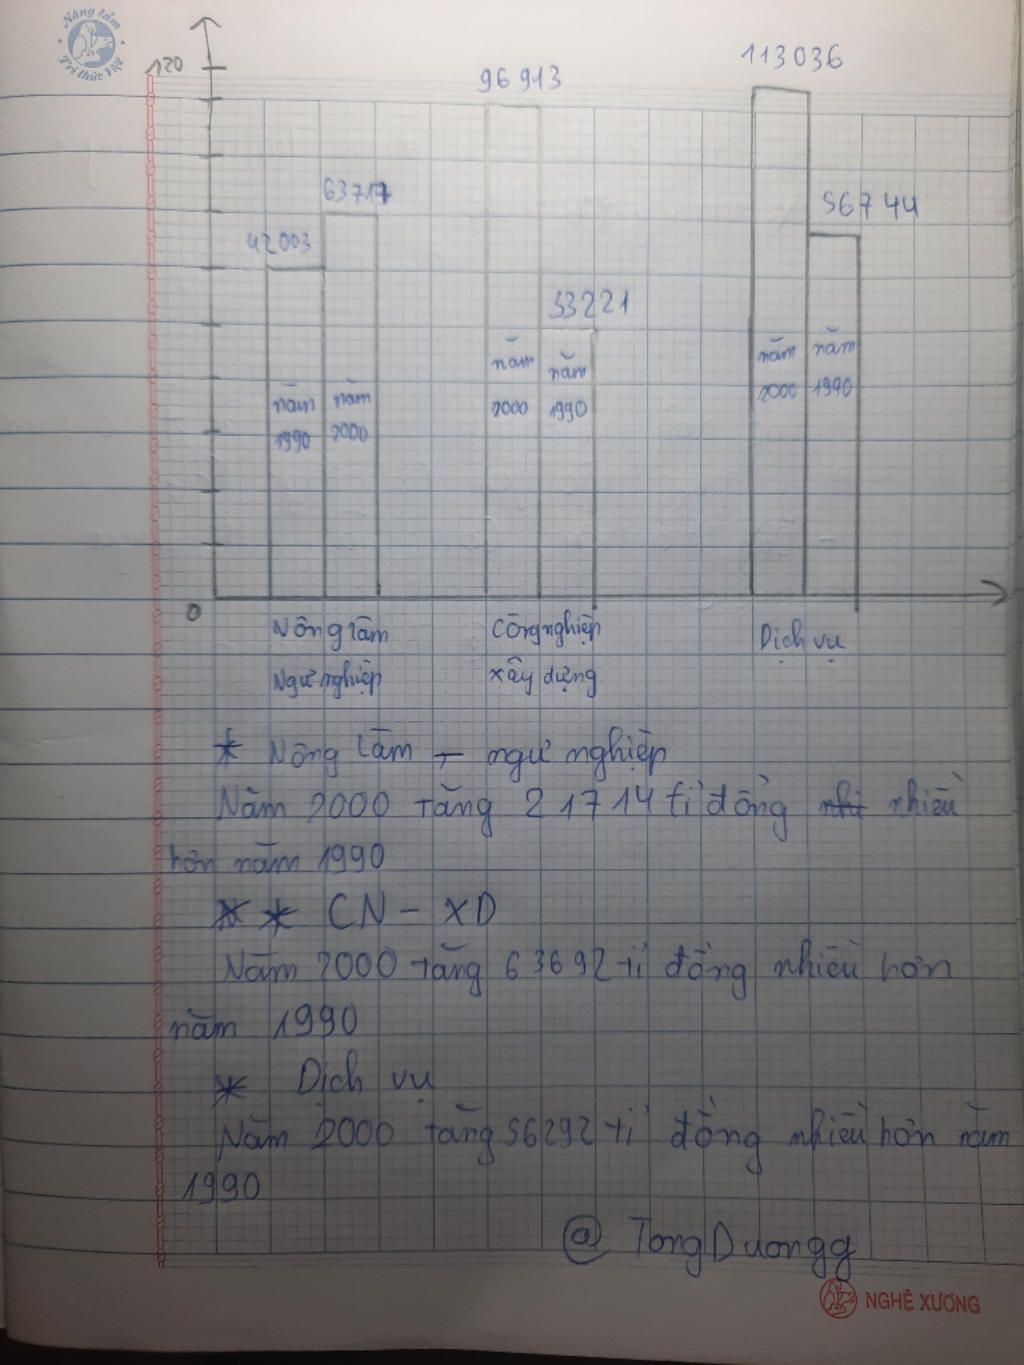 Nâng tầm
Tri thức Việt
120
113036
96 913
63717
56744
42003
33221
năm
2000
năm
1990
năm
2000
năm
1990
năm
1990
năm
2000
0
Nông lâm
Ngư nghiệp
Công nghiệp
xây dựng
Dịch vụ
* Nông lâm - ngư nghiệp
Năm 2000 tăng 21714 tỉ đồng nhiều
hơn năm 1990
* * CN - XD
Năm 2000 tăng 63692 tỉ đồng nhiều hơn
năm 1990
* Dịch vụ
Năm 2000 tăng 56292 tỉ đồng nhiều hơn năm
1990
@ TongDuongg
NGHỆ XƯƠNG